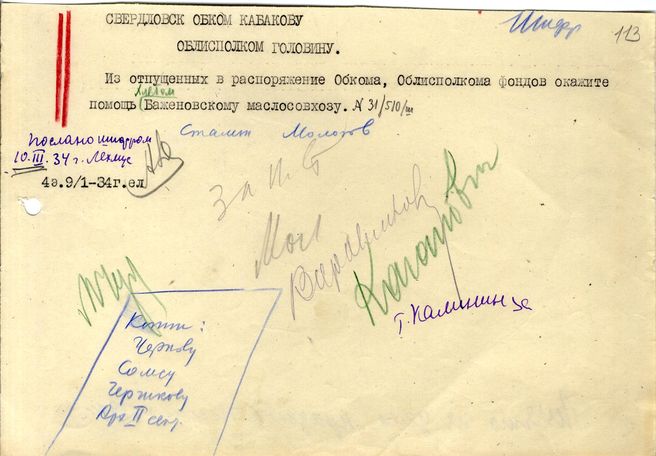 Шифр
113
СВЕРДЛОВСК ОБКОМ КАБАКОВУ
ОБЛИСПОЛКОМ ГОЛОВИНУ.
Из отпущенных в распоряжение Обкома, Облисполкома фондов окажите
хлебом
помощь Баженовскому маслосовхозу. № 31/510/ш
Сталин Молотов
Послано шифром
10.III.34 г.
4э.9/1-34г.ел
За
Мол
Ворошилов
Каганович
т. Калинин за
Копии:
Чернову
Сомсу
Чернкову
II сект.